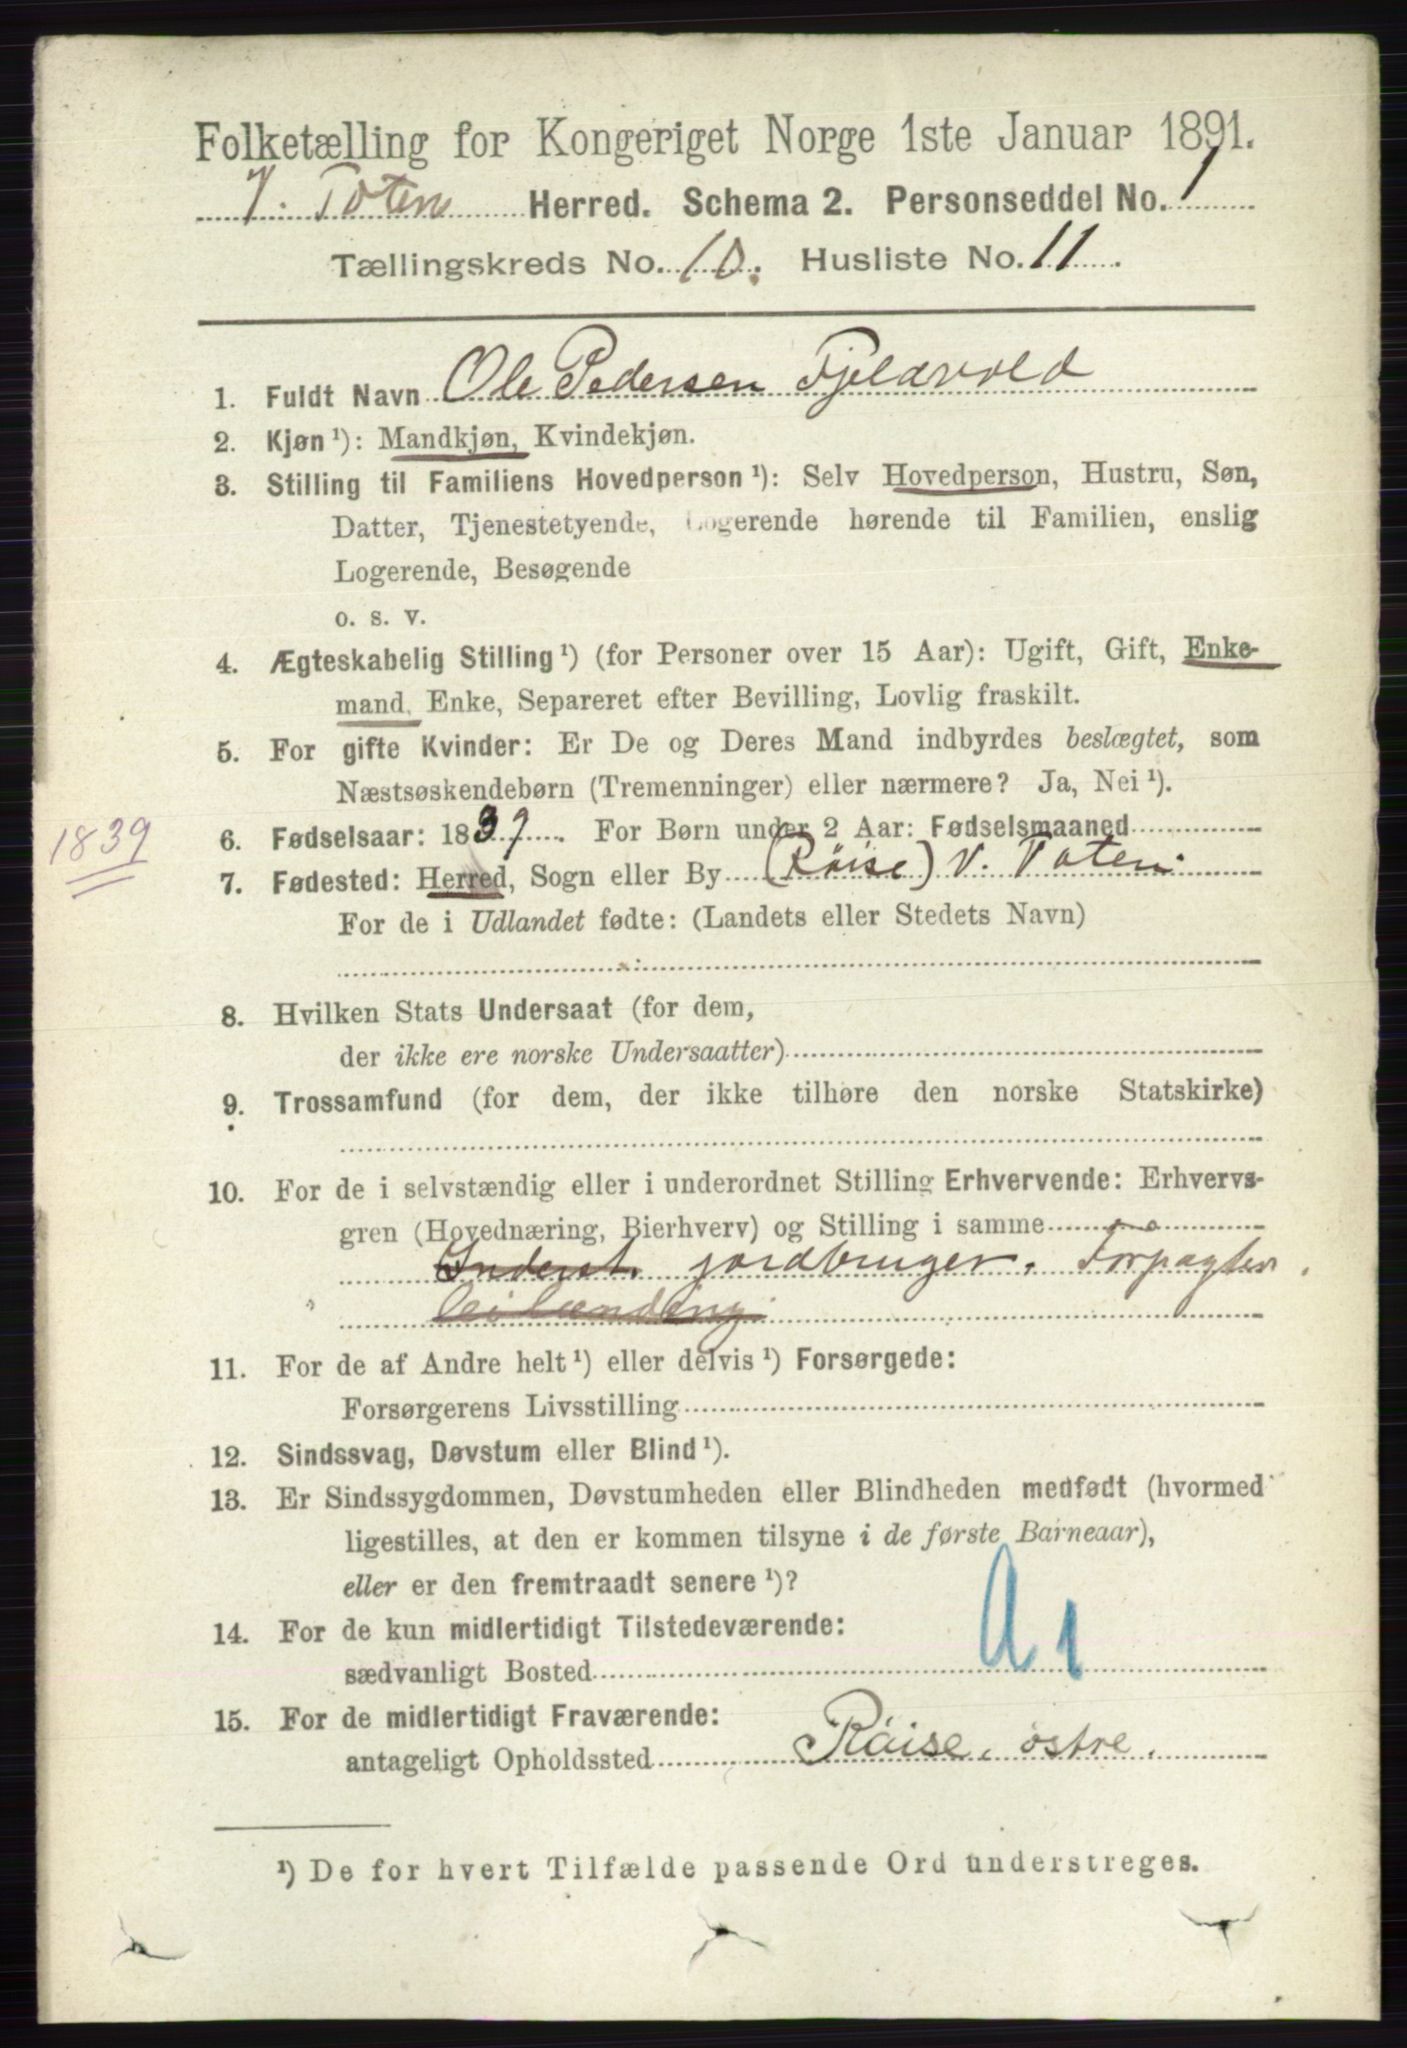 Folketælling for Kongeriget Norge 1ste Januar 1891.
V. Toten Herred. Schema 2. Personseddel No. 1
Tællingskreds No. 10. Husliste No. 11.
1. Fuldt Navn Ole Pedersen Fjeldvold
2. Kjøn ¹): Mandkjøn, Kvindekjøn.
3. Stilling til Familiens Hovedperson ¹): Selv Hovedperson, Hustru, Søn,
Datter, Tjenestetyende, Logerende hørende til Familien, enslig
Logerende, Besøgende
o. s. v.
4. Ægteskabelig Stilling ¹) (for Personer over 15 Aar): Ugift, Gift, Enke-
mand, Enke, Separeret efter Bevilling, Lovlig fraskilt.
5. For gifte Kvinder: Er De og Deres Mand indbyrdes beslægtet, som
Næstsøskendebørn (Tremenninger) eller nærmere? Ja, Nei ¹).
1839
6. Fødselsaar: 1839. For Børn under 2 Aar: Fødselsmaaned
7. Fødested: Herred, Sogn eller By (Röise) V. Toten.
For de i Udlandet fødte: (Landets eller Stedets Navn)
8. Hvilken Stats Undersaat (for dem,
der ikke ere norske Undersaatter)
9. Trossamfund (for dem, der ikke tilhøre den norske Statskirke)
10. For de i selvstændig eller i underordnet Stilling Erhvervende: Erhvervs-
gren (Hovednæring, Bierhverv) og Stilling i samme
Inderst. jordbruger. Forpagter.
leilænding
11. For de af Andre helt ¹) eller delvis ¹) Forsørgede:
Forsørgerens Livsstilling
12. Sindssvag, Døvstum eller Blind ¹).
13. Er Sindssygdommen, Døvstumheden eller Blindheden medfødt (hvormed
ligestilles, at den er kommen tilsyne i de første Barneaar),
eller er den fremtraadt senere ¹)?
14. For de kun midlertidigt Tilstedeværende:
sædvanligt Bosted
A 1
15. For de midlertidigt Fraværende:
antageligt Opholdssted Röise, östre.
¹) De for hvert Tilfælde passende Ord understreges.